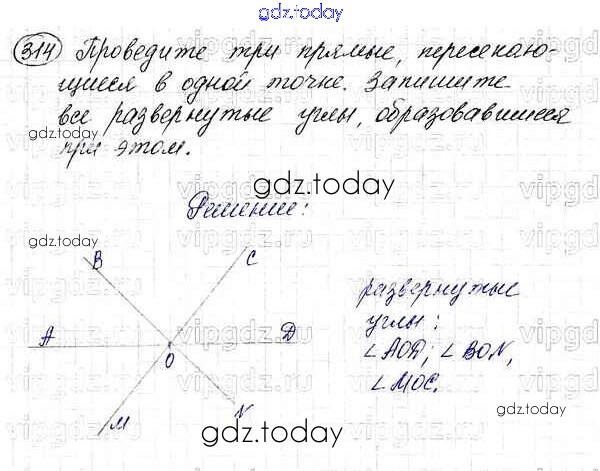 gdz.today
314 Проведите три прямые, пересекаю-
щиеся в одной точке. Запишите
все развернутые углы, образовавшиеся
gdz.today
при этом.
gdz.today
Решение:
gdz.today
B
C
развернутые
углы:
A
O
D
∠AOD; ∠BON,
∠MOC.
M
N
gdz.today
gdz.today